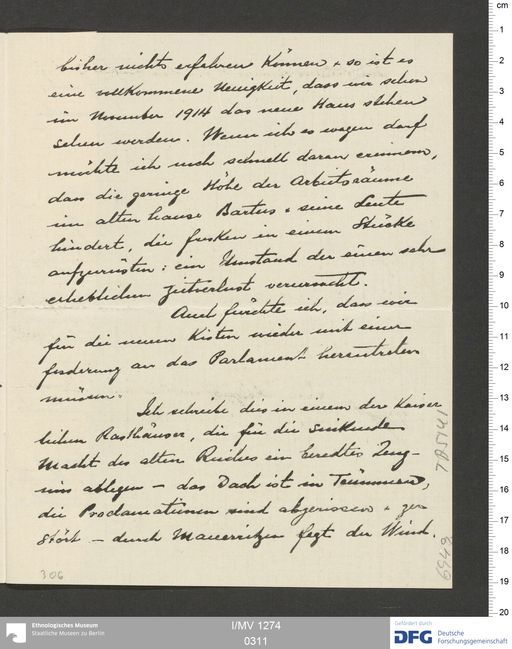 bisher nichts erfahren können & so ist es
eine vollkommene Neuigkeit, dass wir schon
im November 1914 das neue Haus stehen
sehen werden. Wenn ich es wagen darf
möchte ich noch schnell daran erinnern,
dass die geringe Höhe der Arbeitsräume
im alten hause Bartus & seine Leute
hindert, die fresken in einem Stücke
aufzurüsten: ein Umstand der einen sehr
erheblichen Zeitverlust verursacht.
Auch fürchte ich, dass wir
für die neuen Kisten wieder mit einer
forderung an das Parlament herantreten
müssen.
Ich schreibe dies in einem der Kaiser
lichen Rasthäuser, die für die sinkende
Macht des alten Reiches ein beredtes Zeug-
niss ablegen – das Dach ist in Trümmern,
die Proclamationen sind abgerissen & zer
stört – durch Mauerritzen fegt der Wind.
306
TB5141
6949
cm
1
2
3
4
5
6
7
8
9
10
11
12
13
14
15
16
17
18
19
20
Ethnologisches Museum
Staatliche Museen zu Berlin
I/MV 1274
0311
Gefördert durch
DFG Deutsche
Forschungsgemeinschaft